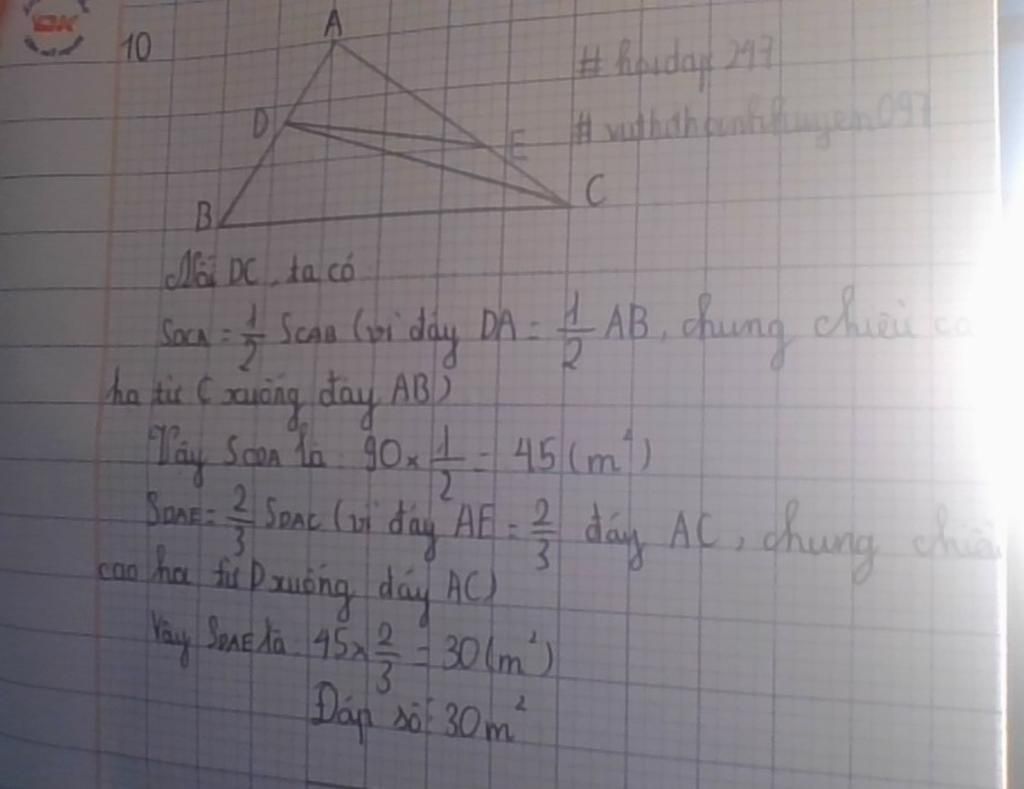 10
A
D
E
B
C
Nối DC, ta có
SDCA = 1/2 SCAB (vì đáy DA = 1/2 AB, chung chiều ca
hạ từ C xuống đáy AB)
Vậy SCDA là 90 × 1/2 = 45 (m²)
SDAE = 2/3 SDAC (vì đáy AE = 2/3 đáy AC, chung chiề
cao hạ từ D xuống đáy AC)
Vậy SDAE là 45 × 2/3 = 30 (m²)
Đáp số: 30m²